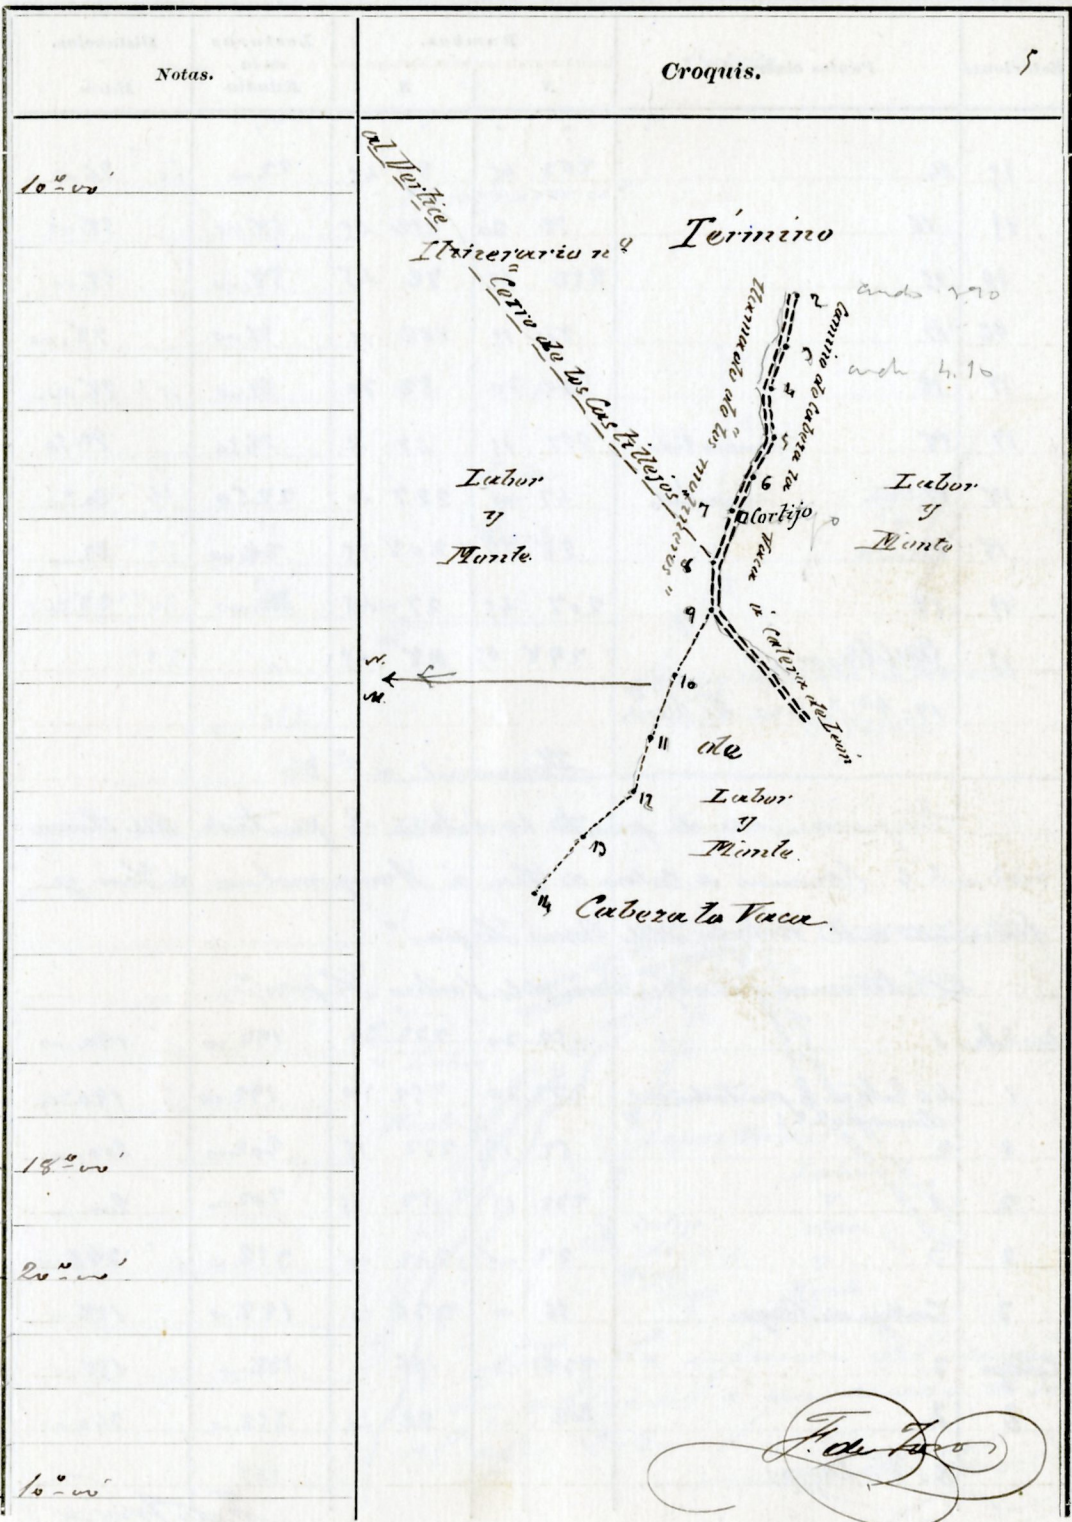 Notas.
Croquis.
5
10º00'
al Vértice
"Cerro de los Castillejos"
Itinerario nº
Término
Llamado de los molineros"
Camino de Cabeza la Vaca á Calera de León
2
5
6
7
8
9
10
11
12
13
14
Cortijo
Labor
y
Monte.
Labor
y
Monte
N.
M.
de
Labor
y
Monte.
Cabeza la Vaca
18º00'
20º00'
10º00'